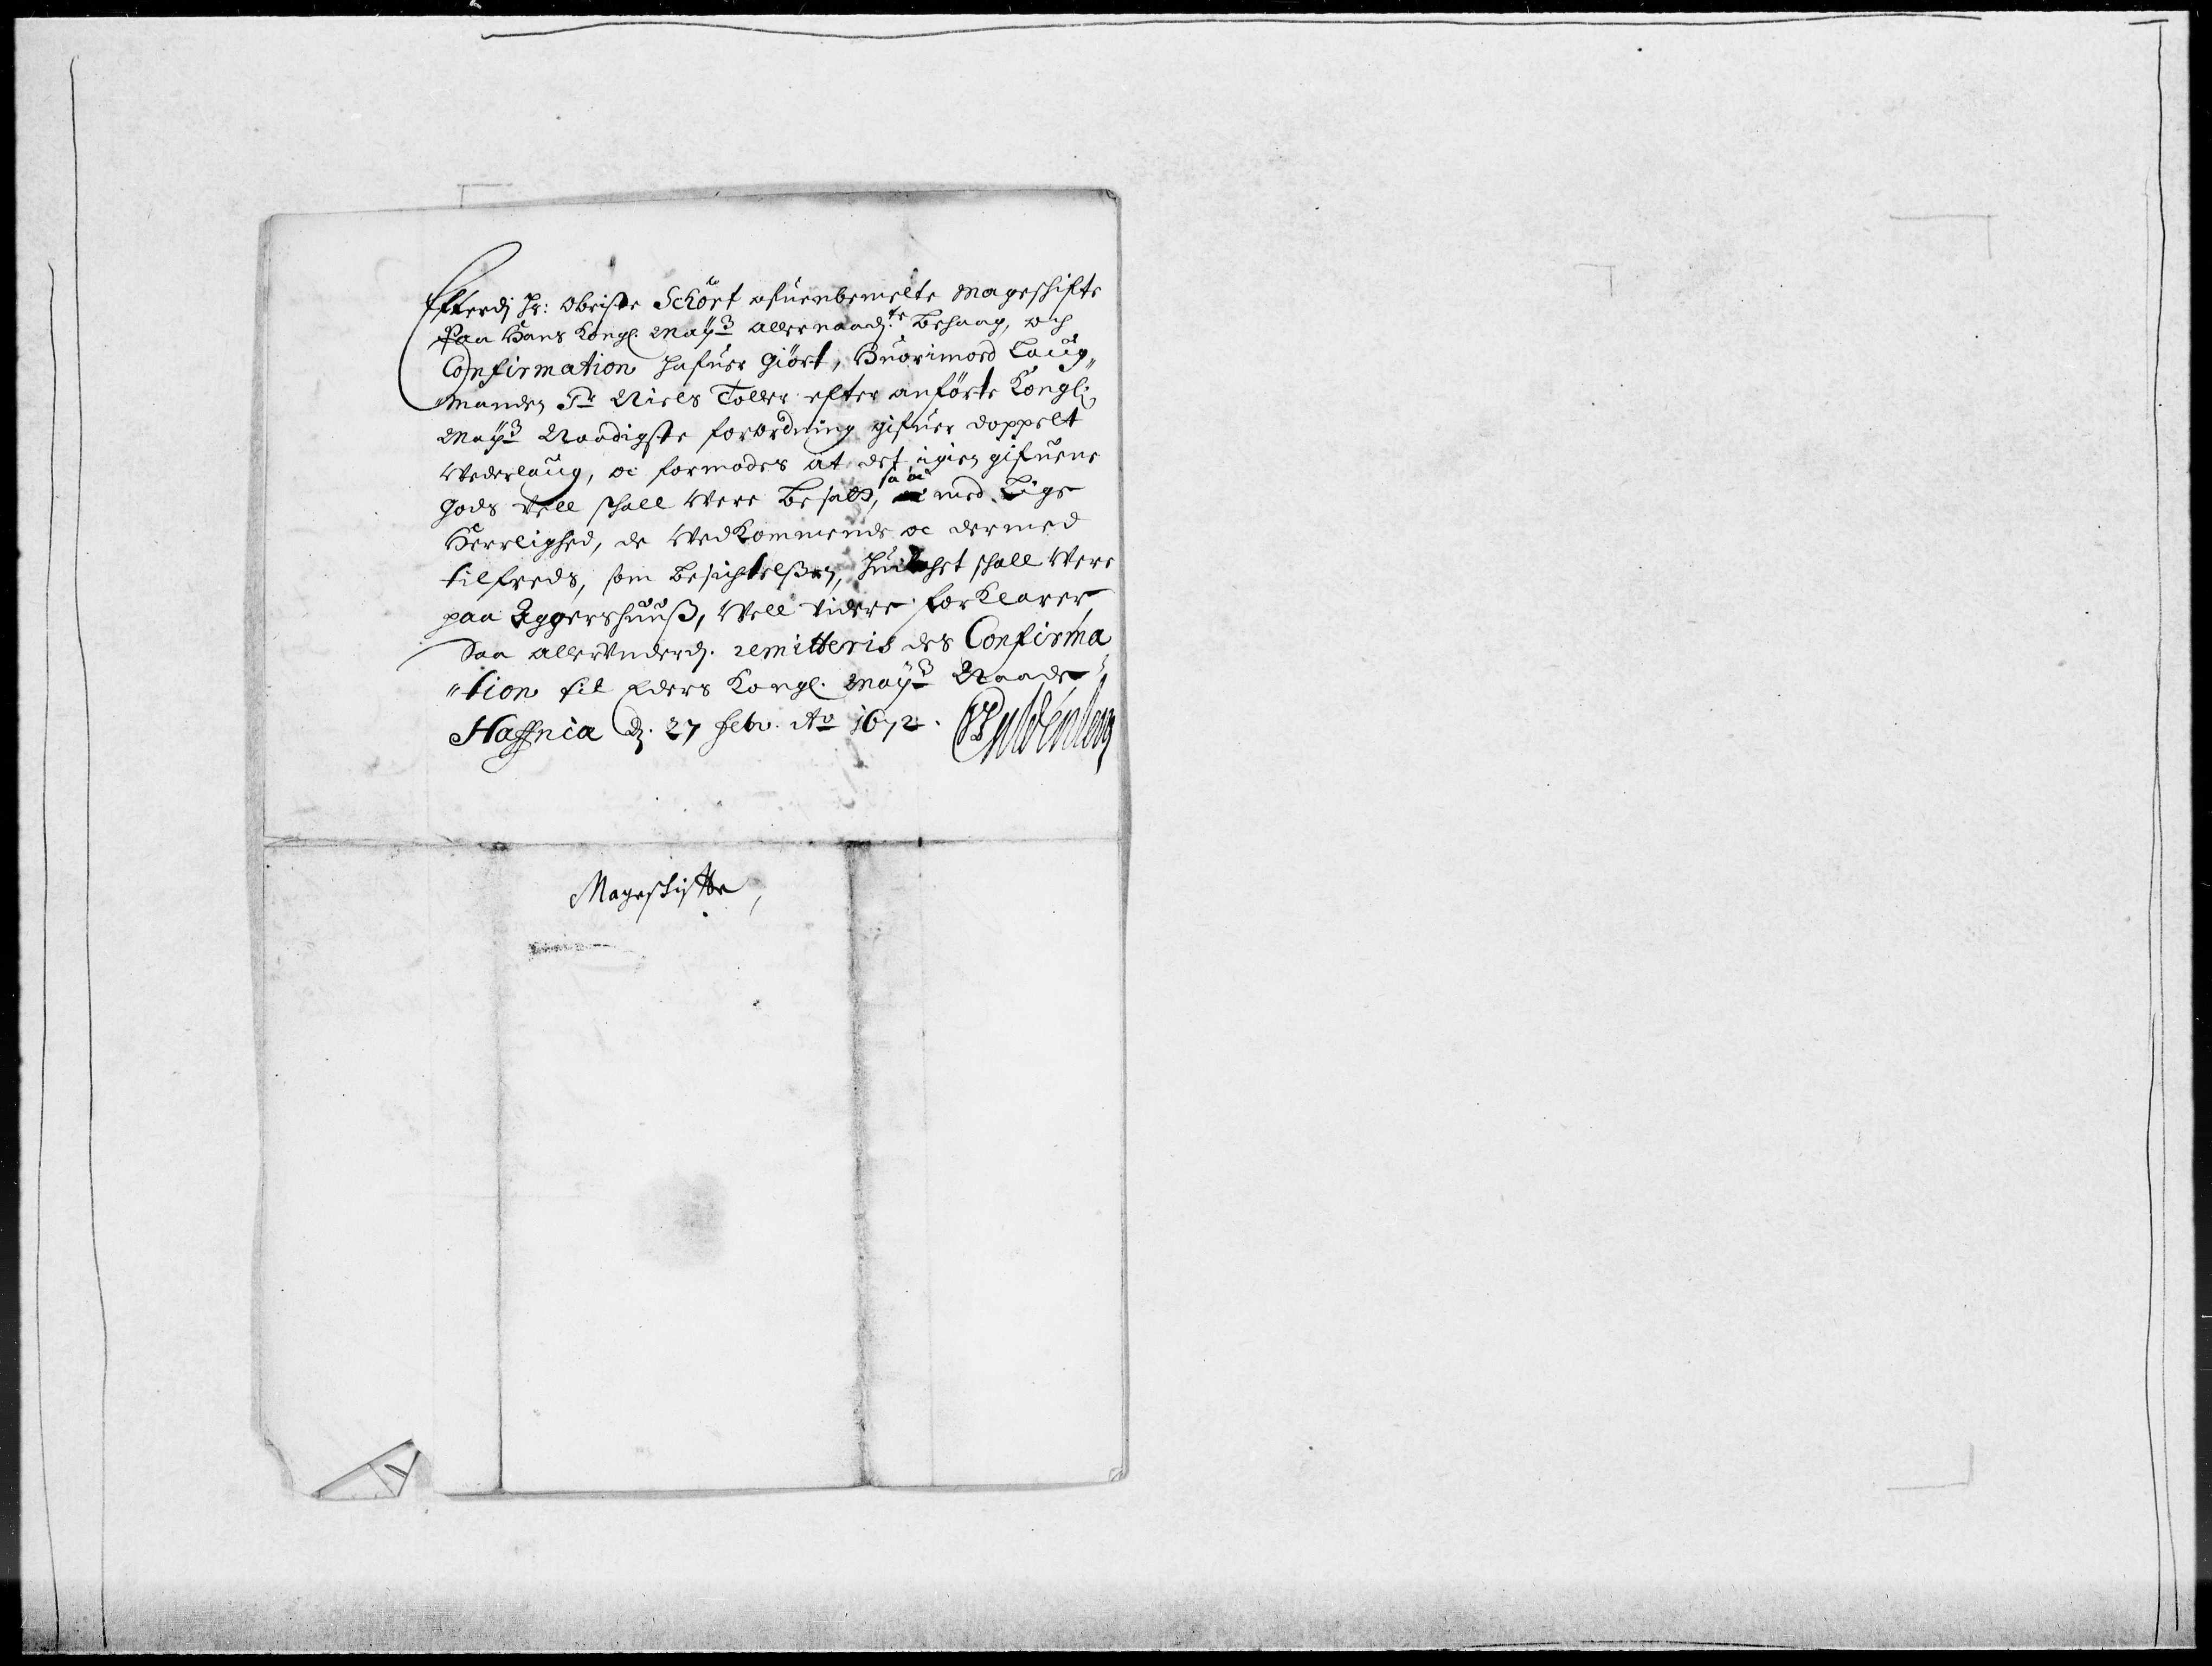 Efterdj Hr: Obriste Schört ofuenbemelte Mageskifte
Paa Hans Kongl. Mayts allernaadj.te Behaag, och
Confirmation hafuer giört, Huorimod Laug„
„manden Sr Niels Toller efter anförte Kongl:
Mayts Naadigste forordning gifuer doppelt
Vederlaug, oc formodes at det igien gifuene
Gods Vell schall Vere Besatt, saa oc med Lige
Herrlighed, de Vedkommende oc dermed
tilfreds, som Besichtelßen, schall Vere
paa Aggershuuß, Vell Videre forklarer
Saa allerunderdj. remitteris des Confirma„
„tion til Eders Kongl. Mayts Naade
Haffnia d. 27 febr. Ao 1672. Gyldenlew
Mageskifte,